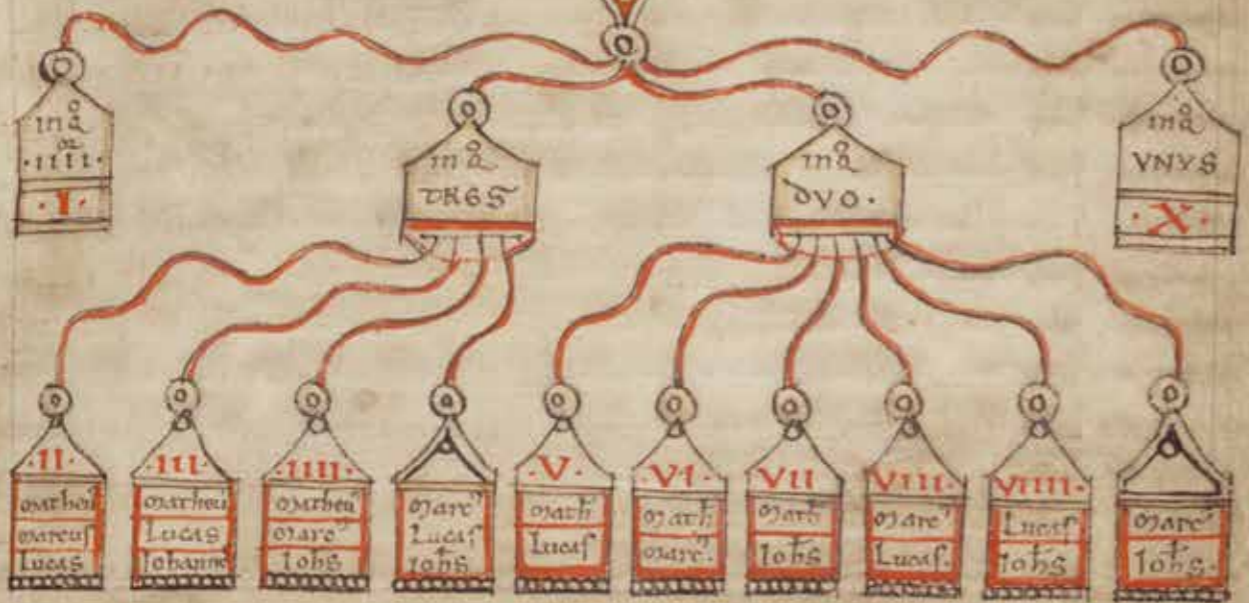 in q̊
q̊r
·IIII·
·I·
in q̊
TRES
in q̊
DUO·
in q̊
UNUS
·X·
·II·
matheuˀ
marcuſ
Lucas
·III·
matheuˀ
Lucas
Iohanneˀ
·IIII·
matheuˀ
marcˀ
Iohs
marcˀ
Lucaſ
Ioħs
·V·
matħ
Lucaſ
·VI·
matħ
marcˀ·
VII
matħ
Ioħs
VIII·
marcˀ
Lucaſ·
VIIII·
Lucaſ
Ioħs
marcˀ
Ioħs·